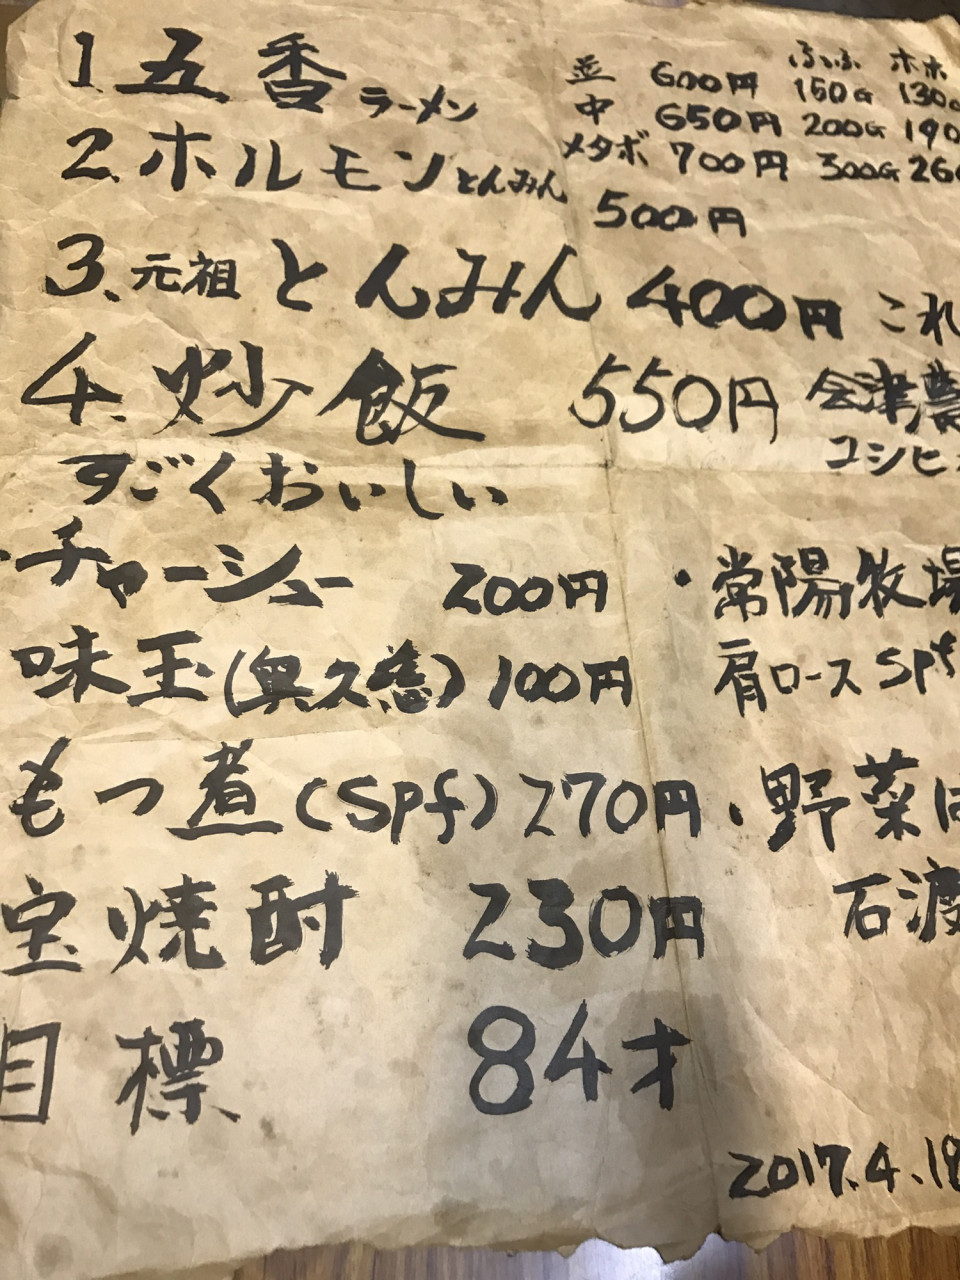 ふふふ ホホ
1. 五香ラーメン 並 600円 150G 130G
中 650円 200G 190
2. ホルモンとんみん メタボ 700円 300G 260
500円
3. 元祖とんみん 400円 これ
4. 炒飯 550円 会津農
すごくおいしい コシヒ
・チャーシュー 200円 ・常陽牧場
味玉(奥久慈) 100円 肩ロース spf
もつ煮(spf) 270円 ・野菜は
宝焼酎 230円 石渡
目標 84才
2017.4.18